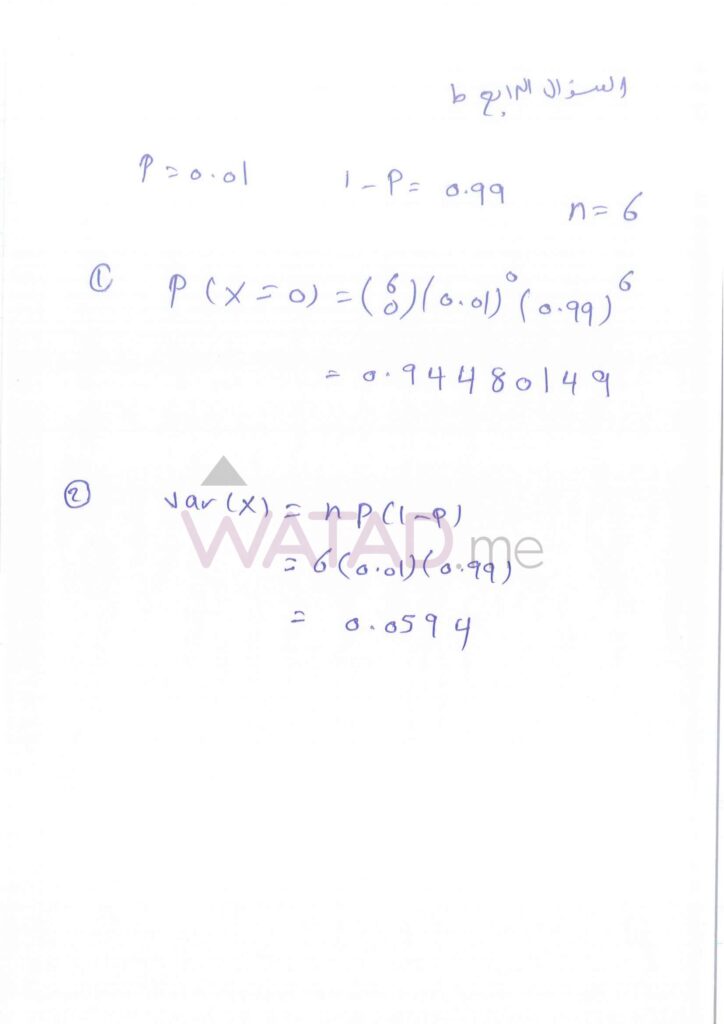 السؤال الرابع ط
P = 0.01 1 - P = 0.99 n = 6
① P(X = 0) = (6 0)(0.01)^0 (0.99)^6
= 0.94480149
② Var(X) = n P(1-P)
= 6(0.01)(0.99)
= 0.0594
WATAD.me